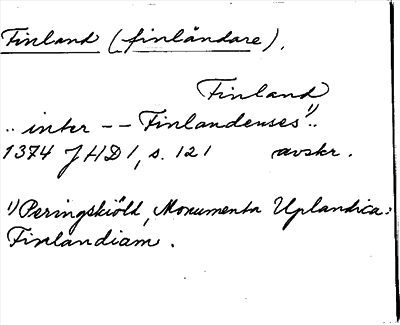 Finland (finländare).
Finland
.. inter -- Finlandenses¹⁾..
1374 JHD 1, s. 121 avskr.
¹⁾ Peringskiöld, Monumenta Uplandica:
Finlandiam.